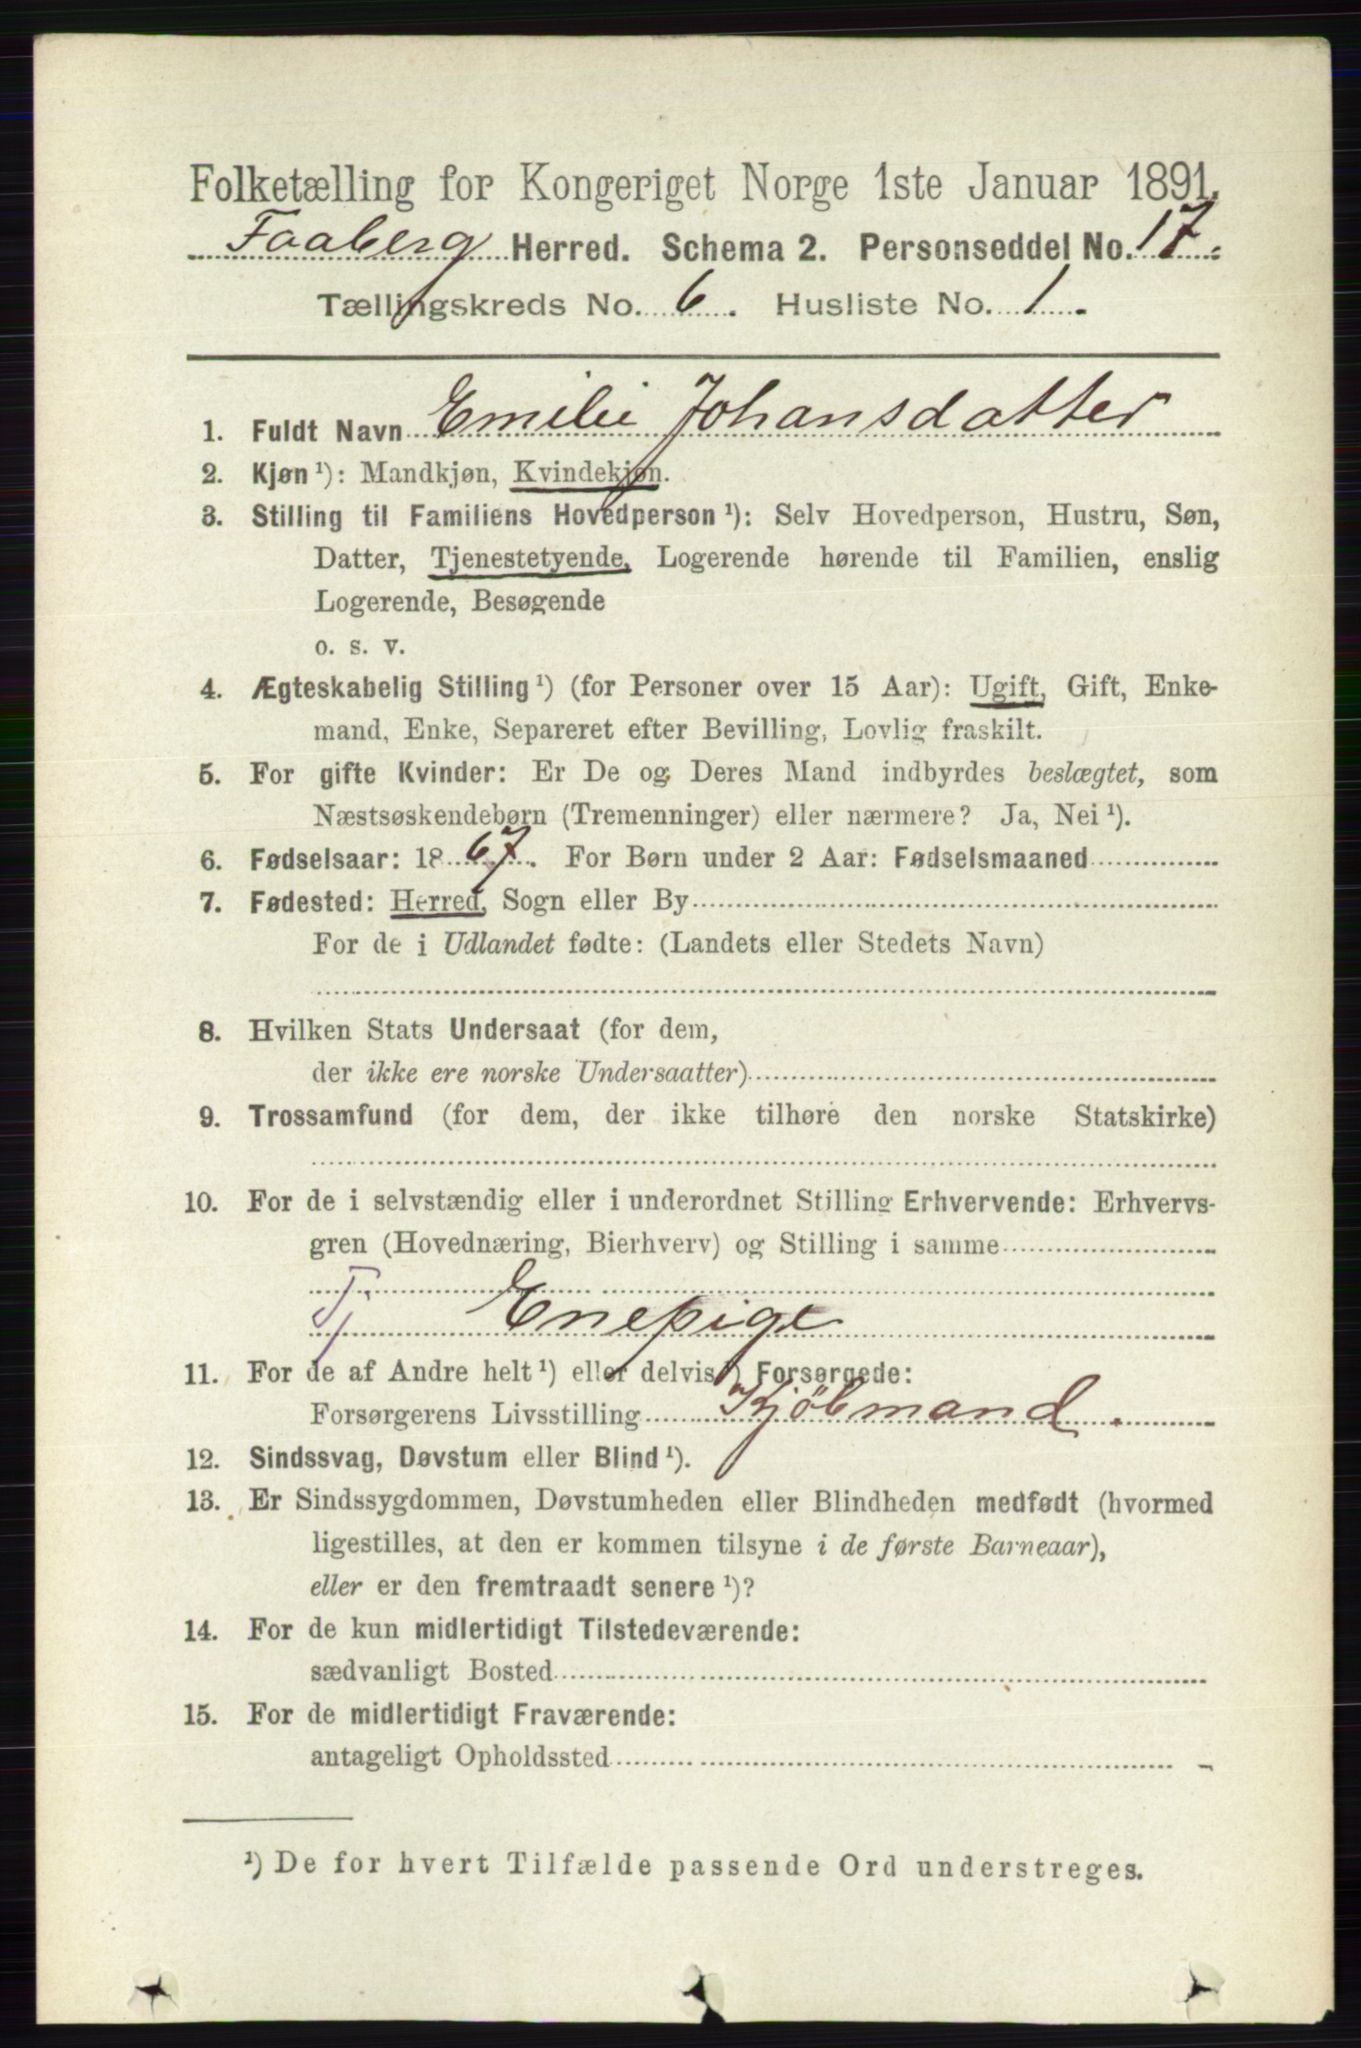 Folketælling for Kongeriget Norge 1ste Januar 1891.
Faaberg Herred. Schema 2. Personseddel No. 17.
Tællingskreds No. 6. Husliste No. 1.
1. Fuldt Navn Emilie Johansdatter
2. Kjøn ¹): Mandkjøn, Kvindekjøn.
3. Stilling til Familiens Hovedperson ¹): Selv Hovedperson, Hustru, Søn,
Datter, Tjenestetyende, Logerende hørende til Familien, enslig
Logerende, Besøgende
o. s. v.
4. Ægteskabelig Stilling ¹) (for Personer over 15 Aar): Ugift, Gift, Enke-
mand, Enke, Separeret efter Bevilling, Lovlig fraskilt.
5. For gifte Kvinder: Er De og Deres Mand indbyrdes beslægtet, som
Næstsøskendebørn (Tremenninger) eller nærmere? Ja, Nei ¹).
6. Fødselsaar: 1867. For Børn under 2 Aar: Fødselsmaaned
7. Fødested: Herred, Sogn eller By
For de i Udlandet fødte: (Landets eller Stedets Navn)
8. Hvilken Stats Undersaat (for dem,
der ikke ere norske Undersaatter)
9. Trossamfund (for dem, der ikke tilhøre den norske Statskirke)
10. For de i selvstændig eller i underordnet Stilling Erhvervende: Erhvervs-
gren (Hovednæring, Bierhverv) og Stilling i samme
Tj Enepige
11. For de af Andre helt ¹) eller delvis ¹) Forsørgede:
Forsørgerens Livsstilling Kjöbmand.
12. Sindssvag, Døvstum eller Blind ¹).
13. Er Sindssygdommen, Døvstumheden eller Blindheden medfødt (hvormed
ligestilles, at den er kommen tilsyne i de første Barneaar),
eller er den fremtraadt senere ¹)?
14. For de kun midlertidigt Tilstedeværende:
sædvanligt Bosted
15. For de midlertidigt Fraværende:
antageligt Opholdssted
¹) De for hvert Tilfælde passende Ord understreges.